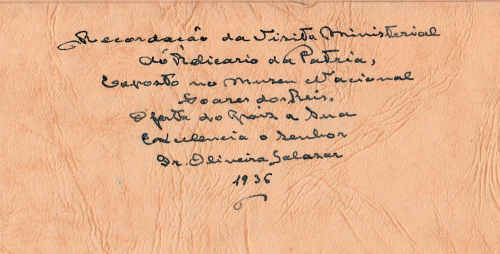 Recordação da Visita Ministerial
dó Relicario da Patria,
Exposto no Museu Nacional
Soares dos Reis.
Oferta do Paiz a Sua
Excelencia o Senhor
Dr. Oliveira Salazar
1936